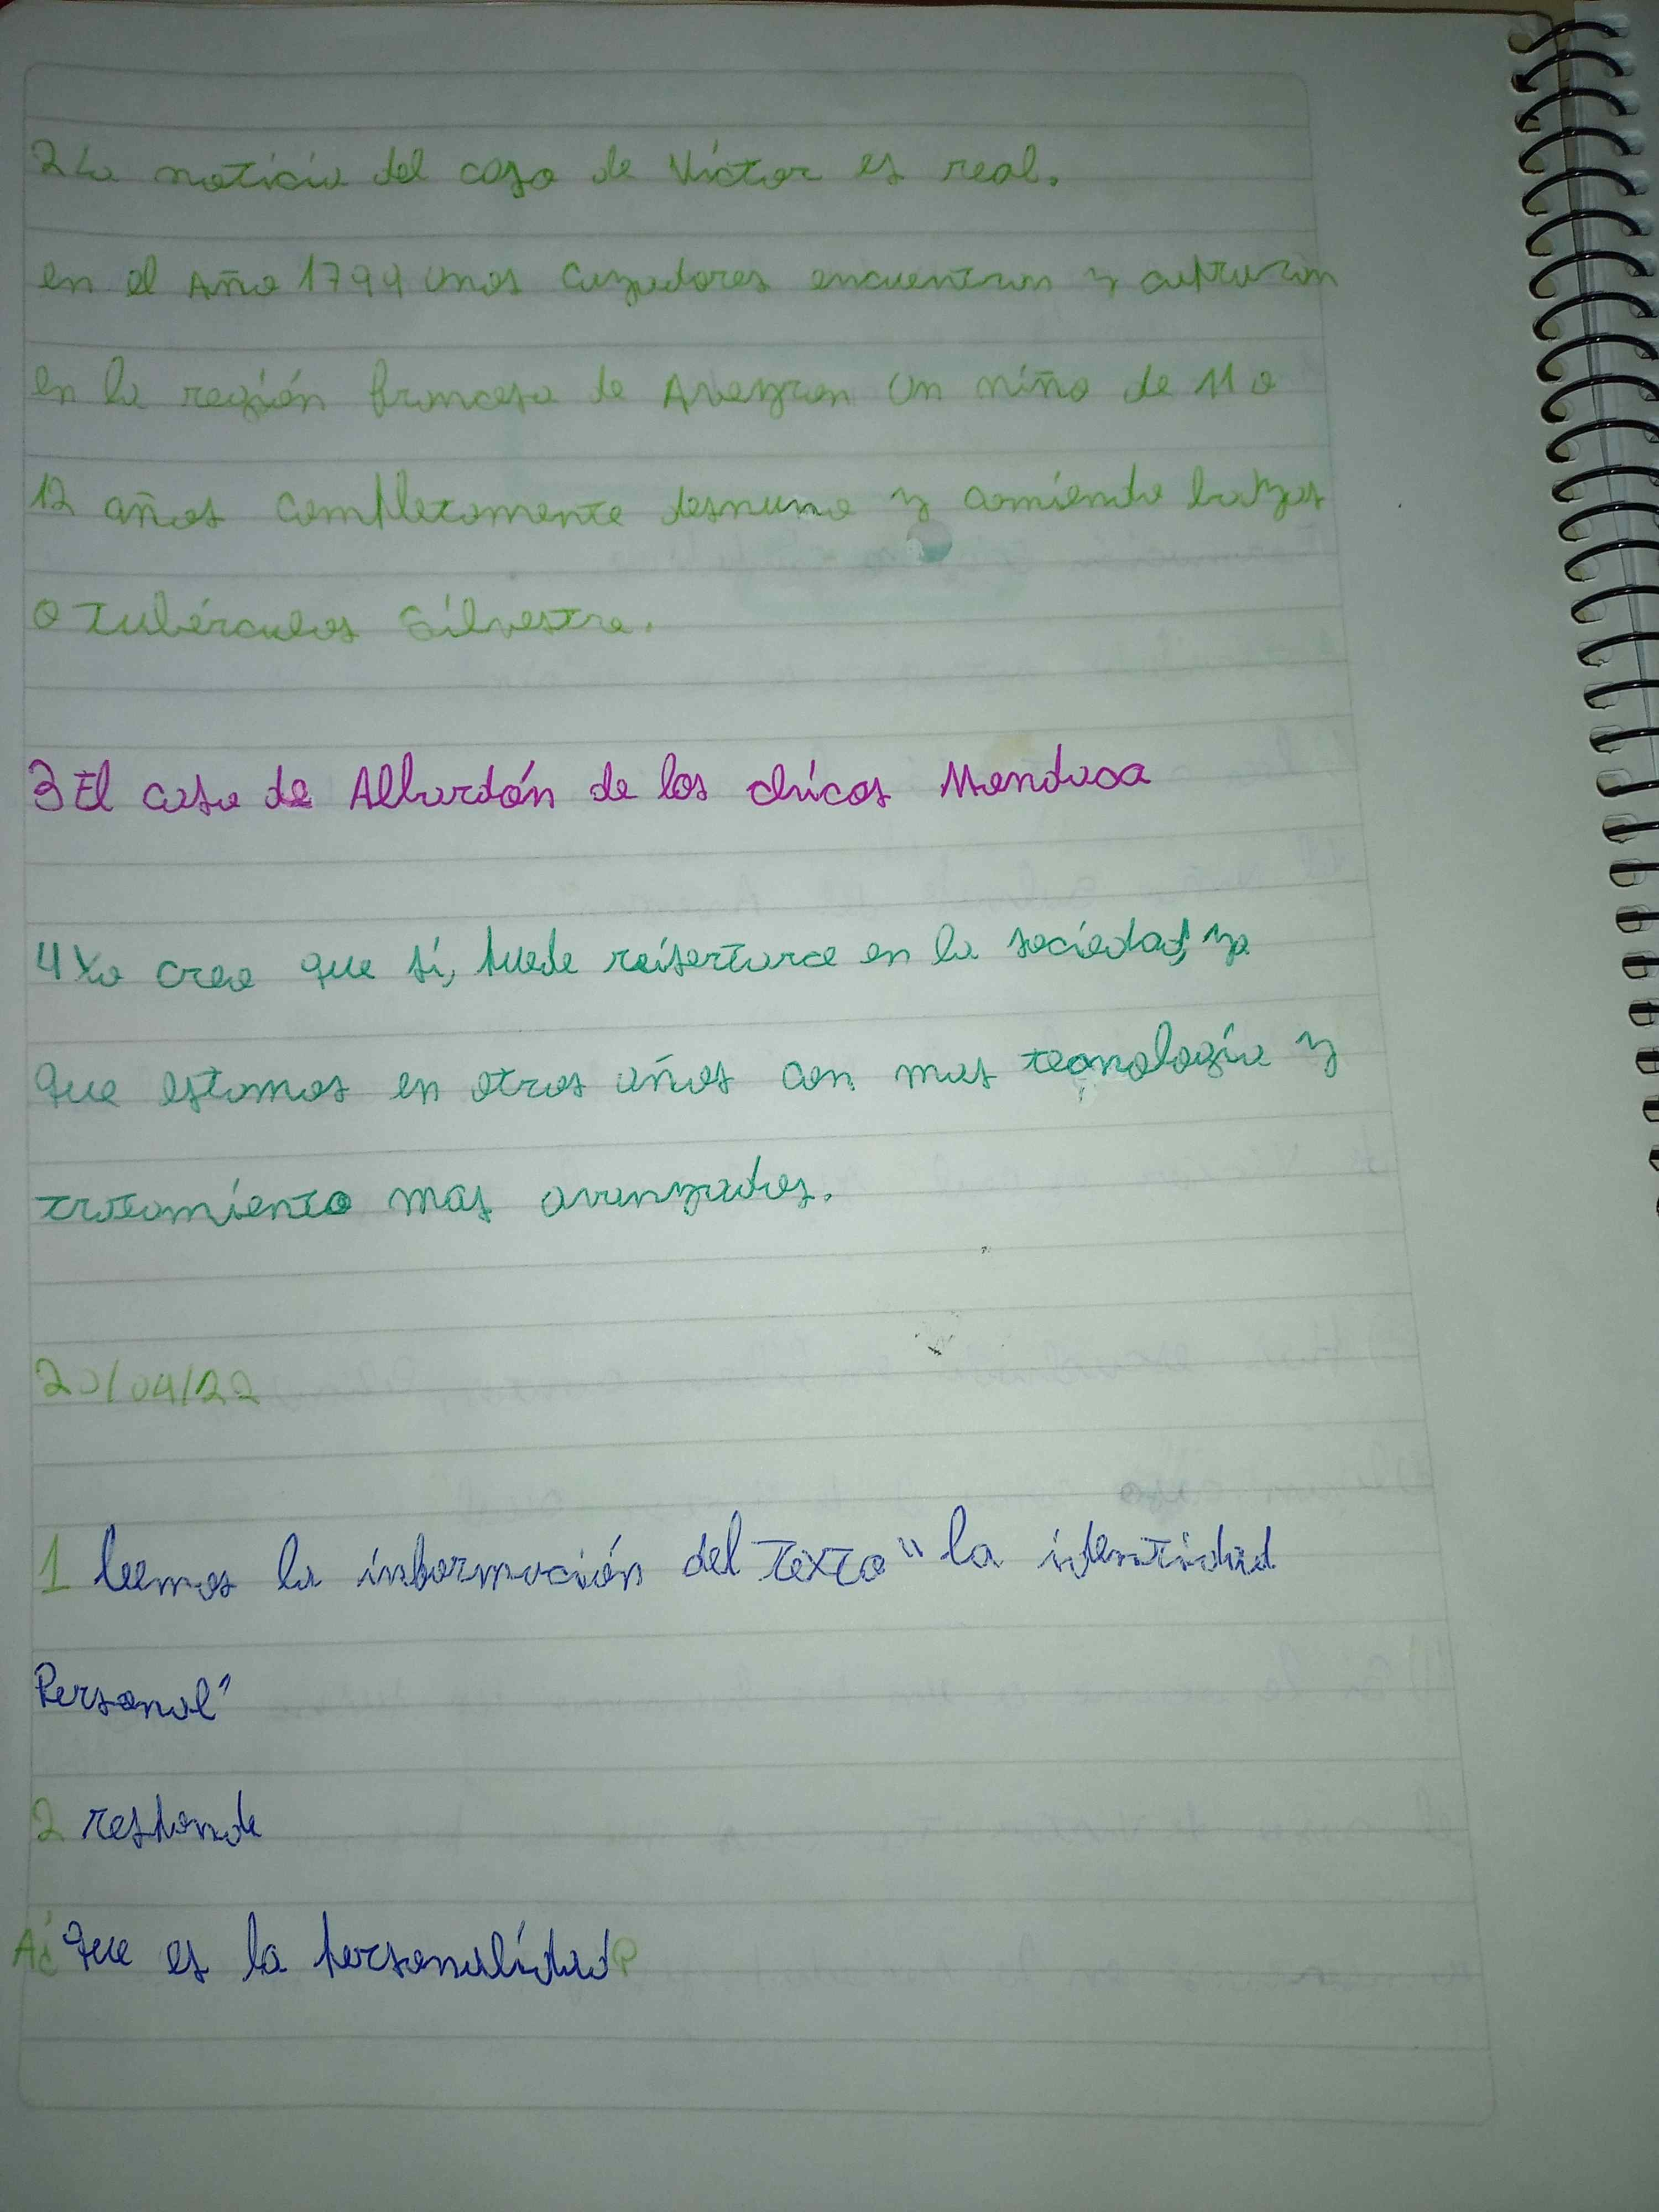 2 La noticia del caso de Víctor es real.
en el Año 1799 unos cazadores encuentran y capturan
en la región francesa de Aveyron un niño de 11 o
12 años completamente desnudo y comiendo
o tubérculos Silvestre.
3 El caso de Albardón de los chicos Mendoza
4 Yo creo que sí, puede reisertarce en la sociedad, ya
que estamos en otros años con mas tecnología y
tratamiento mas avanzados.
20/04/22
1 leemos la información del texto "la identidad
Personal"
2 responde
A¿ que es la personalidad?